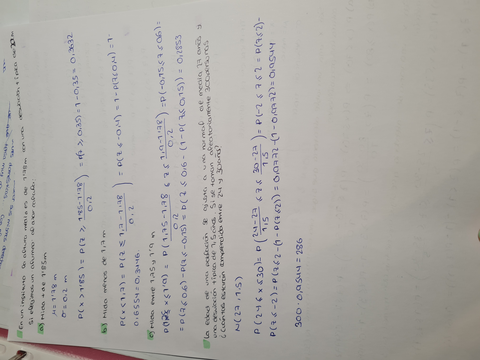 En un instituto la altura media es de 1'78m con una desviación típica de 20cm
Si elegimos un alumno al azar calcula:
a) Mida más de 1'85m
N = 1'78 m
σ = 0'2 m
P(x ≥ 1'85) = P(z ≥ 1'85-1'78 / 0'2) = P(z ≥ 0'35) = 1 - 0'35 = 0'3632
b) Mida menos de 1'7m
P(x ≤ 1'7) = P(z ≤ 1'7-1'78 / 0'2) = P(z ≤ -0'4) = 1 - P(z ≤ 0'4) = 1-
0'6554 = 0'3446
c) Mida entre 1'75 y 1'9 m
P(1'75 ≤ x ≤ 1'9) = P(1'75-1'78 / 0'2 ≤ z ≤ 1'9-1'78 / 0'2) = P(-0'15 ≤ z ≤ 0'6) =
= P(z ≤ 0'6) - P(z ≤ -0'15) = P(z ≤ 0'6 - (1 - P(z ≤ 0'15)) = 0'2853
La edad de una población se ajusta a una normal de media 27 años y
una desviación típica de 1'5 años. Si se toman 300
¿Cuántos estarán comprendidos entre 24 y 30 años?
N(27, 1'5)
P(24 ≤ x ≤ 30) = P(24-27 / 1'5 ≤ z ≤ 30-27 / 1'5) = P(-2 ≤ z ≤ 2) = P(z ≤ 2) -
P(z ≤ -2) = P(z ≤ 2 - (1 - P(z ≤ 2)) = 0'9772 - (1 - 0'9772) = 0'9544
300 · 0'9544 = 286